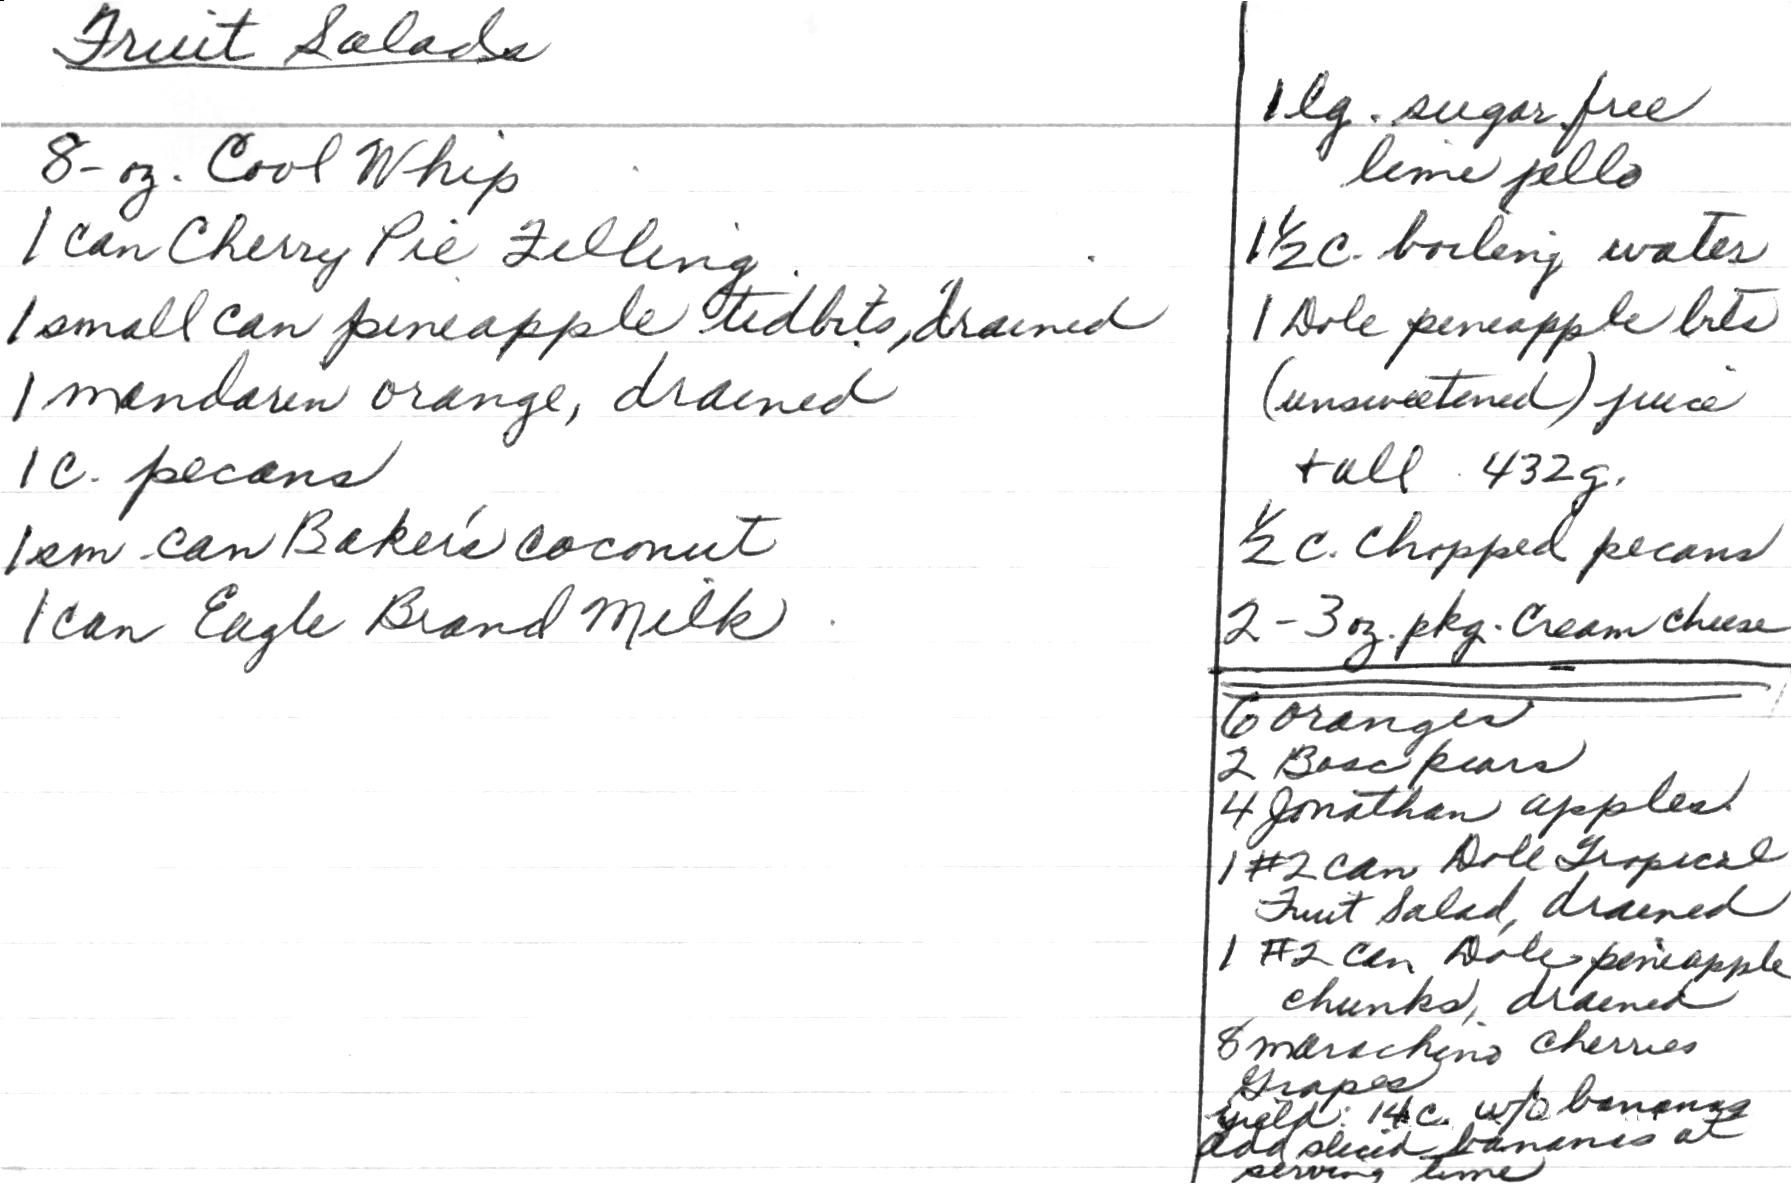 Fruit Salads
8-oz. Cool Whip
1 can Cherry Pie Filling
1 small can pineapple tidbits, drained
1 mandarin orange, drained
1 c. pecans
1 sm can Baker's coconut
1 can Eagle Brand Milk
1 lg. sugar free
lime jello
1 1/2 c. boiling water
1 Dole pineapple bits
(unsweetened) juice
+ all 432g.
1/2 c. Chopped pecans
2 - 3 oz. pkg. Cream cheese
6 oranges
2 Bosc pears
4 Jonathan apples
1 #2 can Dole Tropical
Fruit Salad, drained
1 #2 can Dole pineapple
chunks, drained
8 marachino cherries
Grapes
yield: 14 c. w/o bananas
Add sliced bananas at
serving time